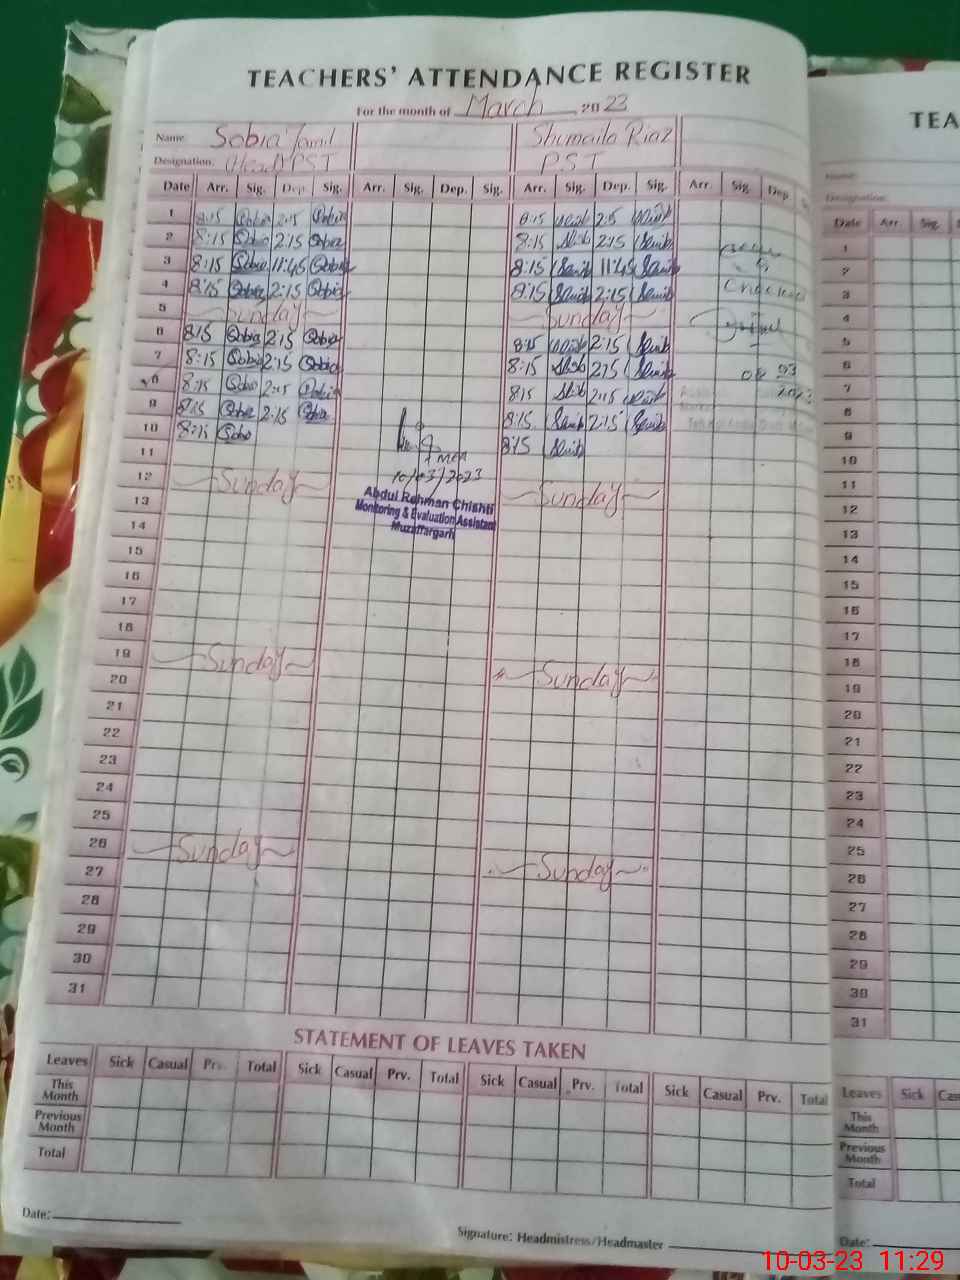 TEACHERS' ATTENDANCE REGISTER
For the month of March 2023
Name. Sobia Jamil Shumaila Riaz
Designation. (Head) PST PST
Date Arr. Sig. Dep. Sig. Arr. Sig. Dep. Sig. Arr. Sig. Dep. Sig. Arr. Sig. Dep
1 8:15 Sobia 2:15 Sobia 8:15 2:15
2 8:15 Sobia 2:15 Sobia 8:15 2:15
3 8:15 Sobia 11:45 Sobia 8:15 11:45
4 8:15 Sobia 2:15 Sobia 8:15 2:15
5 Sunday Sunday
6 8:15 Sobia 2:15 Sobia 8:15 2:15
7 8:15 Sobia 2:15 Sobia 8:15 2:15
8 8:15 Sobia 2:15 Sobia 8:15 2:15
9 8:15 Sobia 2:15 Sobia 8:15 2:15
10 8:15 Sobia 8:15
11
12 Sunday Sunday
13
14
15
16
17
18
19 Sunday Sunday
20
21
22
23
24
25
26 Sunday Sunday
27
28
29
30
31
Checked
08 03
2023
MEA
10/03/2023
Abdul Rehman Chishti
Monitoring & Evaluation Assistant
Muzaffargarh
STATEMENT OF LEAVES TAKEN
Leaves Sick Casual Prv. Total Sick Casual Prv. Total Sick Casual Prv. Total Sick Casual Prv. Total
This Month
Previous Month
Total
Date:
Signature: Headmistress/Headmaster
TEA
Name:
Designation:
Date Arr. Sig.
1
2
3
4
5
6
7
8
9
10
11
12
13
14
15
16
17
18
19
20
21
22
23
24
25
26
27
28
29
30
31
Leaves Sick Cas
This Month
Previous Month
Total
Date:
10-03-23 11:29